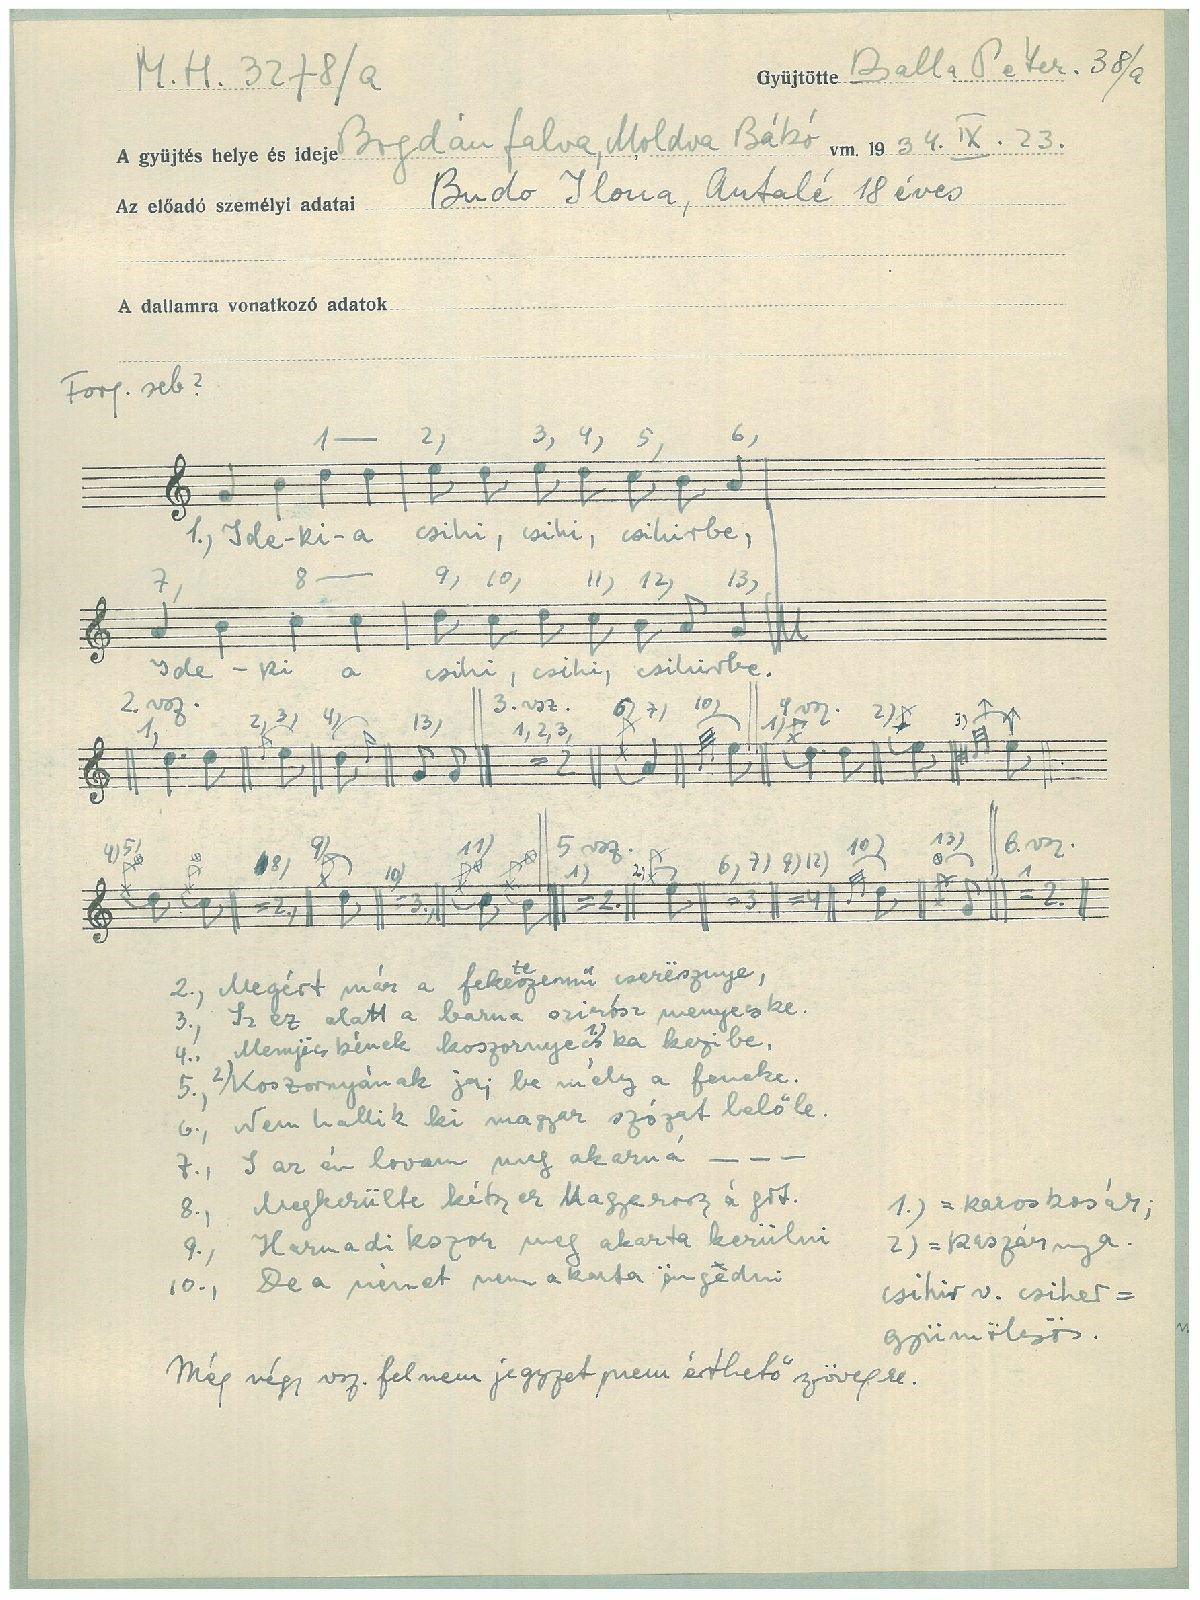 M.H. 3278/a
Gyüjtötte Balla Péter. 38/a
A gyüjtés helye és ideje Bogdánfalva, Moldva Bákó vm. 1934. IX. 23.
Az előadó személyi adatai Budo Ilona, Antalé 18 éves
A dallamra vonatkozó adatok
Forg. seb?
1 — 2, 3, 4, 5, 6,
1., Ide-ki-a csihi, csihi, csihirbe,
7, 8 — 9, 10, 11, 12, 13,
Ide - ki a csihi, csihi, csihirbe.
2. vsz. 3. vsz. 4 vsz.
1, 2, 3) 4) 13) 1, 2, 3, 6) 7, 10) 1) 2) 3)
= 2
5 vsz. 6. vsz.
4) 5) 8) 9) 10) 11) 1) 2, 6, 7) 9) 12) 10) 13) 1
= 2., = 3., = 2. = 3 = 4 = 2.
2., Megért már a feketeszemű cserësznye,
3., Is ez alatt a barna szirósz menyecske.
4., Menyecskének koszornyecska kezibe,
5., 2) Koszornyának jaj be mély a feneke.
6., Nem hallik ki magyar szózat belőle.
7., I az én lovam meg akarná — — —
8., Megkerülte kétszer Magyarországot.
9., Harmadikszor meg akarta kerülni
10., De a német nem akarta
1.) = karoskosár;
2) = kaszárnya.
csihir v. csiher =
gyümölcsös.
Még négy vsz. fel nem jegyzet nem érthető szövegre.